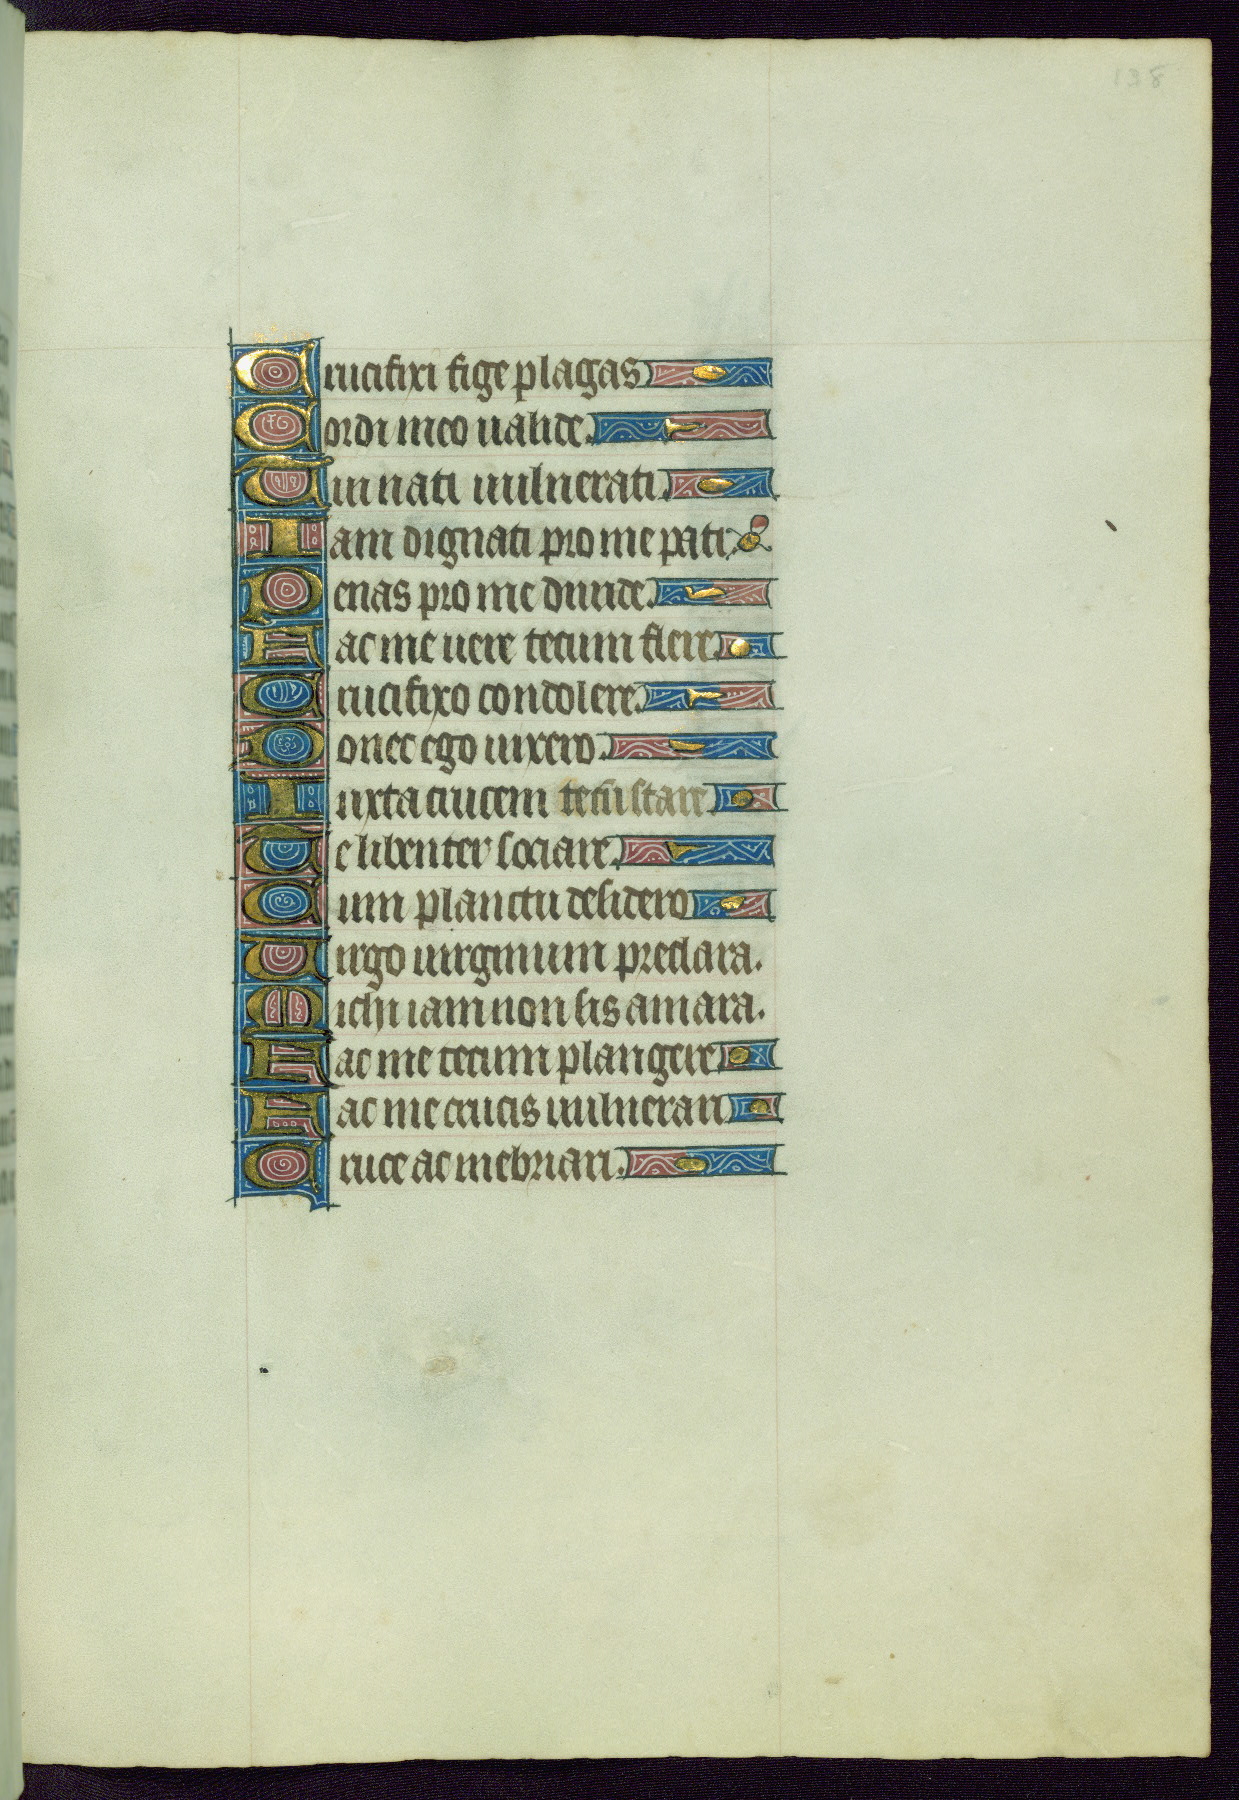 138
Crucifixi fige plagas
Cordi meo ualide.
Tui nati uulnerati
Iam dignati pro me pati
Penas pro me diuide.
Fac me uere tecum flere
Crucifixo condolere.
Donec ego uixero.
Iuxta crucem tecū stare
Te libenter sociare.
Cum planctu desidero
Uirgo uirginum preclara.
Michi iam non sis amara.
Fac me tecum plangere
Fac me crucis uulnerari
Cruce ac mebriari.